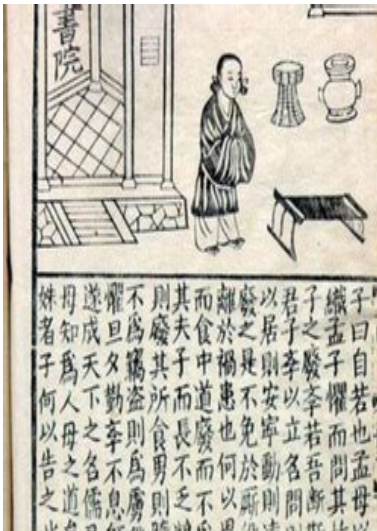 書院
子曰自若也孟母以
織孟子懼而問其
子之廢斈若吾斷
君子斈以立名問
以居則安寧動則遠
廢之是不免於厮役
離於禍患也何以異
而食中道廢而不
其夫子而長不乏
則廢其所食男則
不爲竊盗則爲虜
懼旦夕勤斈不息
遂成天下之名儒
母知爲人母之道矣
姝者子何以告之